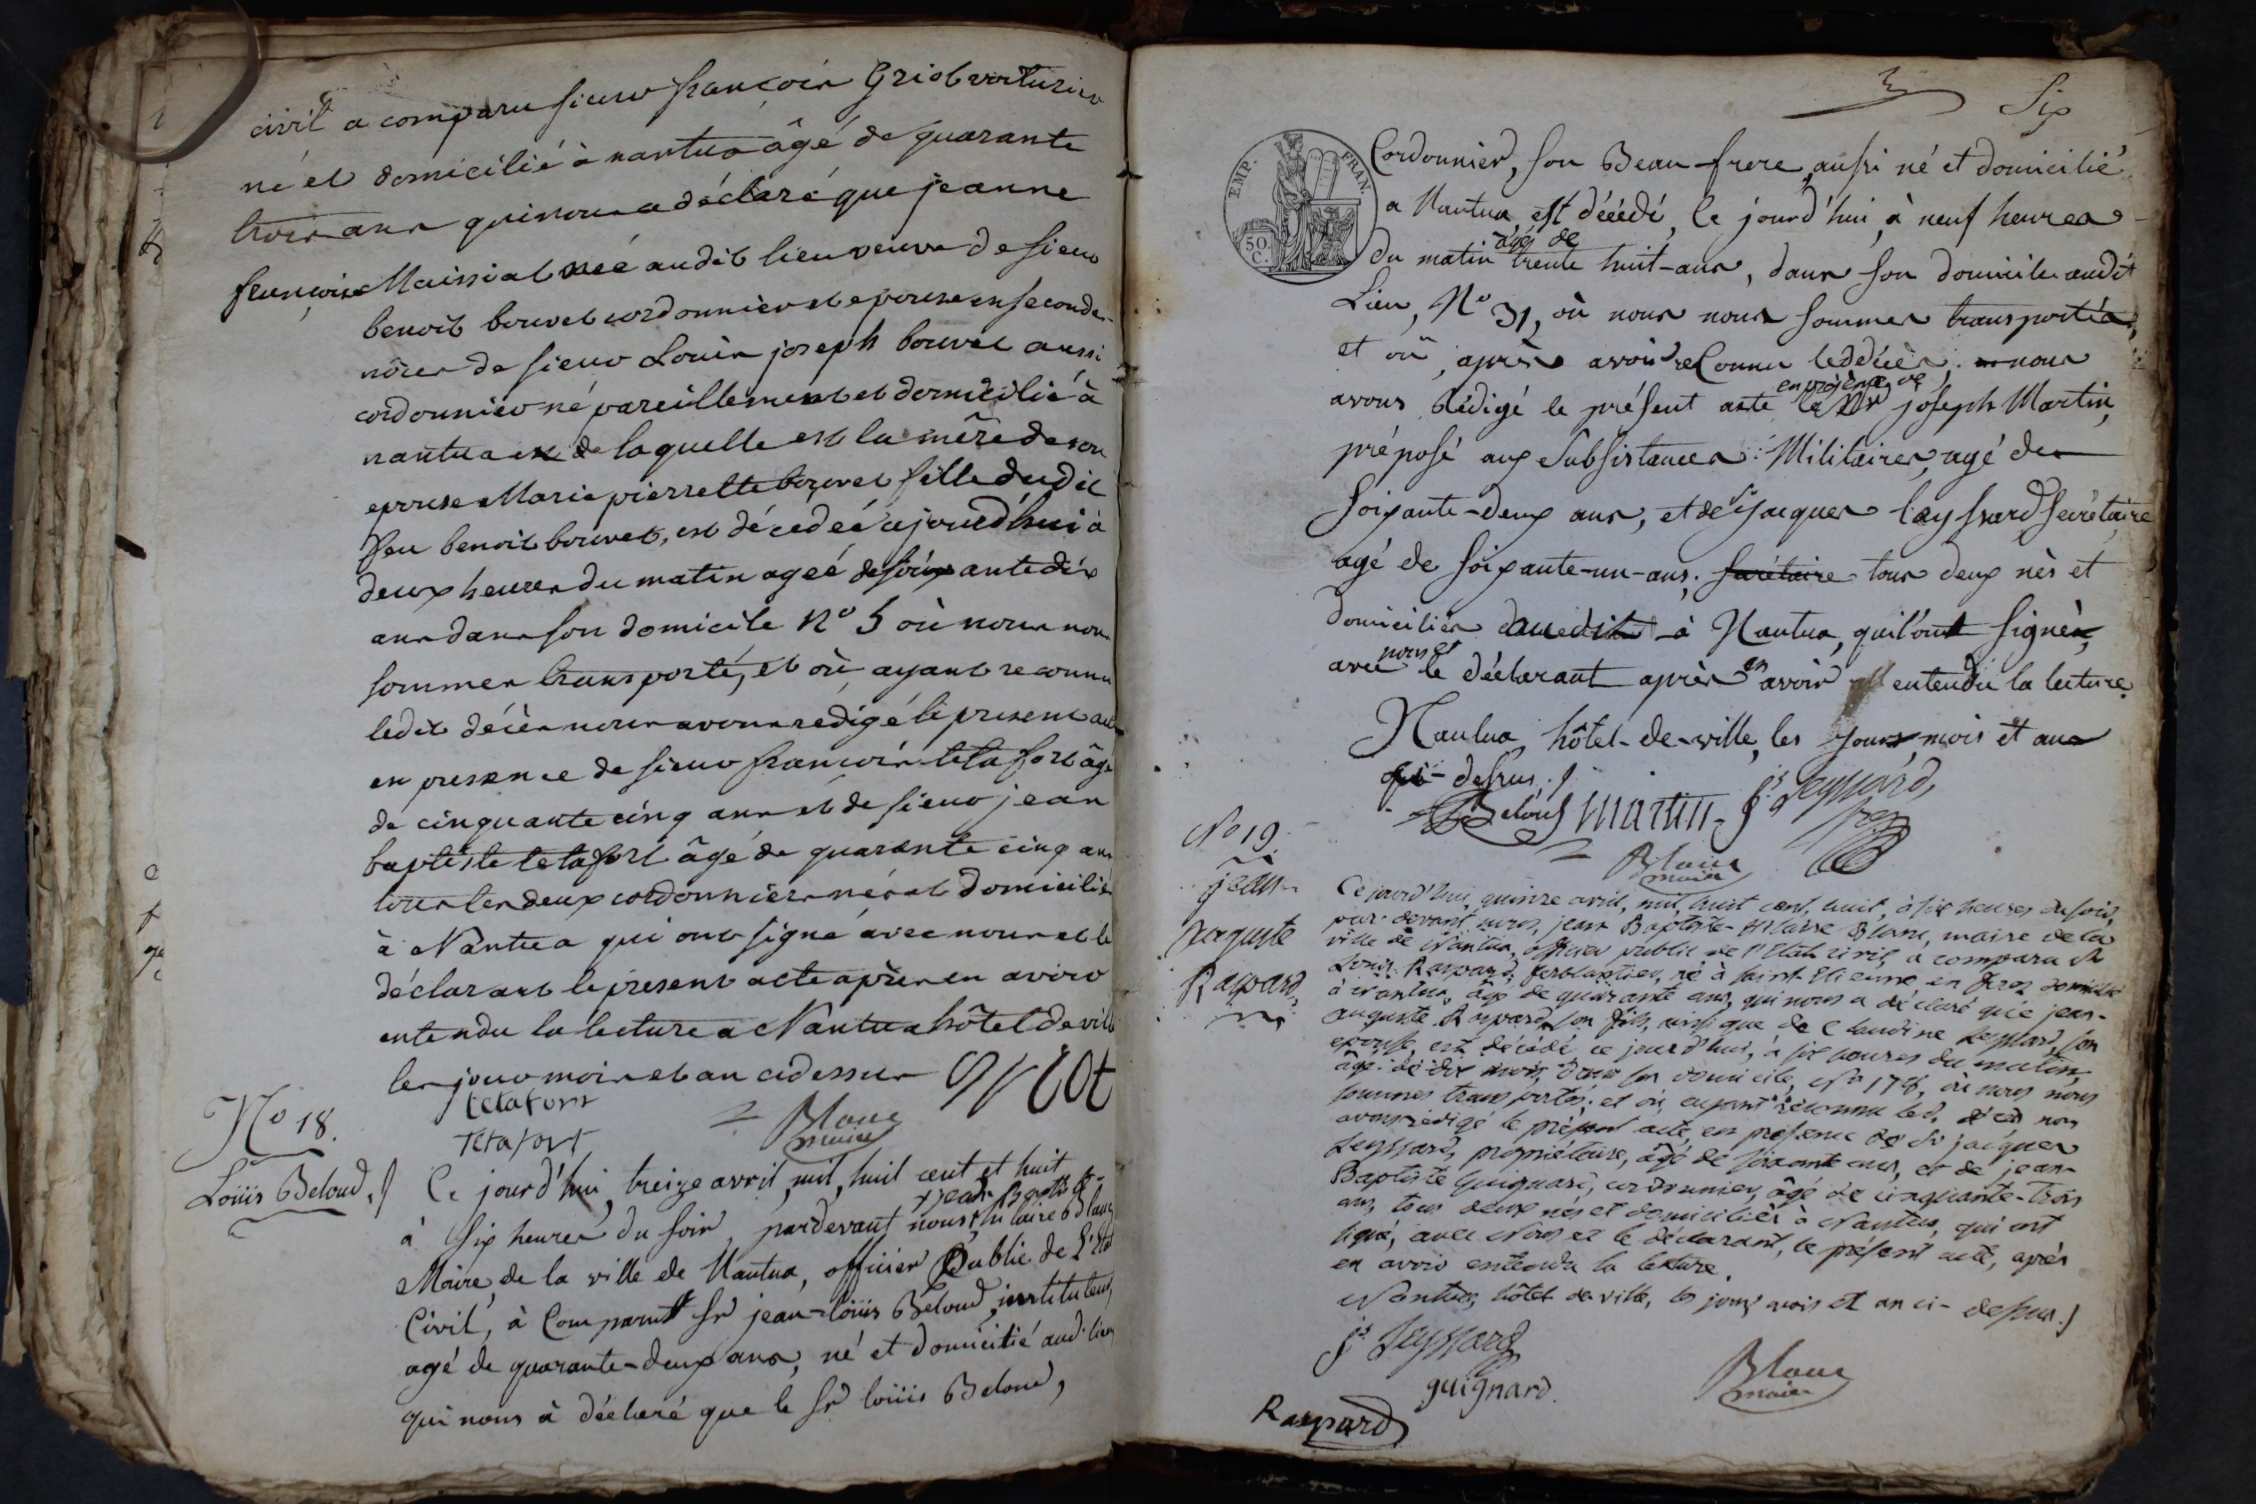 civil a comparu sieur françois Griot voiturier
né et domicilié à nantua âgé de quarante
trois ans qui nous a déclaré que jeanne
françoise Maissiat née audit lieu veuve de sieur
benoit bouvet cordonnier et epouse en secondes
nôces de sieur Louis joseph bouvet aussi
cordonnier né pareillement et domicilié à
nantua et de laquelle est la mère de son
epouse Marie pierrette bouvet fille dudit
feu benoit bouvet, est décédeé ajourd'hui à
deux heures du matin ageé de soixante dix
ans dans son domicile N° 5 où nous nous
sommes transporté, et où ayant reconnu
ledit décès nous avons redigé le present acte
en presence de sieur françois tetafort âgé
de cinquante cinq ans et de sieur jean
baptiste tetafort âgé de quarante cinq ans
tous les deux cordonniers nés et domiciliés
à Nantua qui ont signé avec nous et le
déclarant le present acte après en avoir
entendu la lecture a Nantua hôtel de ville
les jour mois et an cidessus Griot
tetafort
Tetafort
Blanc
maire
No 18.
Loüis Beloud.
Ce jourd'hui, treize avril, mil, huit cent et huit
jean Baptiste
à Six heures du soir, pardevant nous, hilaire Blanc
Maire de la ville de Nantua, officier Public de L'Etat
Civil, à Comparut Sr jean-loüis Beloud, instituteur,
agé de quarante-deux ans, né et domicilié aud. lieu
qui nous à déclaré que le Sr loüis Beloud,
Six
EMP. FRAN.
50. C.
Cordonnier, son Beau-frere, aussi né et domicilié
a Nantua, est décédé, le jourd'hui, à neuf heures
âgé de
du matin trente huit-ans, dans son domicile audit
Lieu, N° 31, où nous nous sommes transportés,
et où, après avoir reConnu ledécès, nous
en présence de
avons Rédigé le présent acte le Sr joseph Martin,
préposé aux Subsistances Militaires, agé de
Soixante-deux ans, et de Sr jacques Leyssard Secrétaire
agé de soixante-un-ans, secrétaire tous deux nés et
domiciliés audit à Nantua, qui l'ont signés,
nous et
avec le déclarant après en avoir entendu la lecture
Nantua, hôtel-de-ville, les jours, mois et ans
que dessus.
Beloud Martin Js Leyssard,
Blanc
maire
No 19.
jean-
Auguste
Raspard,
Ce jourd'hui, quinze avril, mil, huit cent, huit, à six heures du soir,
par-devant nous, jean Baptiste-Hilaire Blanc, maire de la
ville de Nantua, officier public de l'Etat civil, a comparu Sr
Louis Raspard, ferblantier, né à saint Etienne en forez, domicilié
à Nantua, âgé de quarante ans, qui nous a déclaré que jean-
auguste Raspard, son fils, ainsi que de Claudine Leyssard, son
epouse, est décédé ce jourd'hui, à six heures du matin,
âgé de dix mois, dans son domicile, No 178, où nous nous
sommes transportés; et où, ayant reconnu led. décès nous
avons rédigé le présent acte, en présence de Sr jacques
Leyssard, propriétaire, âgé de soixante ans, et de jean-
Baptiste Guignard, cordonnier, âgé de cinquante-trois
ans, tous deux nés et domiciliés à Nantua, qui ont
signé, avec Nous et le déclarant, le présent acte, après
en avoir entendu la lecture.
Nantua, hôtel de ville, les jour, mois et an ci-dessus.
Js Leyssard
guignard.
Blanc
maire
Raspard